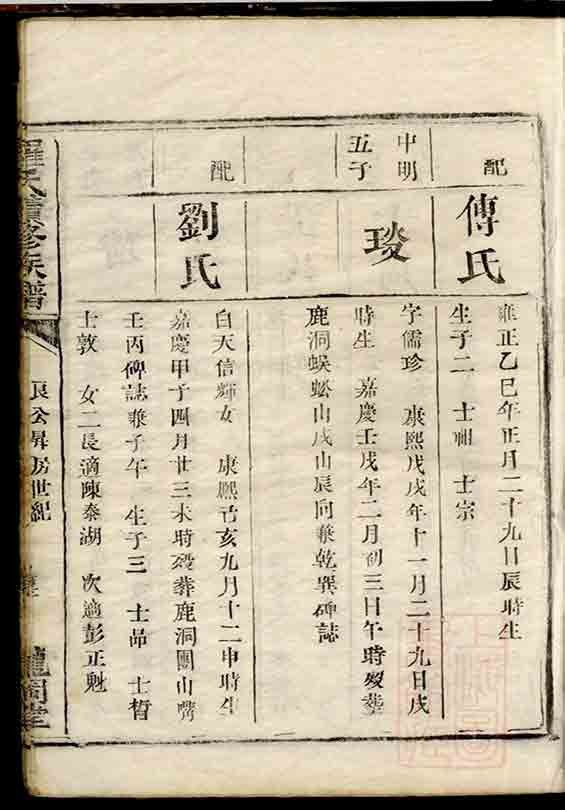 配
傅氏
雍正乙巳年正月二十九日辰時生
生子二 士 士宗
中明
五子
琰
字儒珍 康熙戊戌年十一月二十九日戌
時生 嘉慶壬戌年二月初三日午時歿葬
鹿洞蜈蚣山戌山辰向兼乾巽碑誌
配
劉氏
白天信輝女 康熙己亥九月十二申時生
嘉慶甲子四月廿三未時歿葬鹿洞團山嘴
壬丙碑誌兼子午 生子三 士昂 士晳
士敦 女二長適陳泰湖 次適彭正魁
羅氏續修族譜
良公昇房世紀